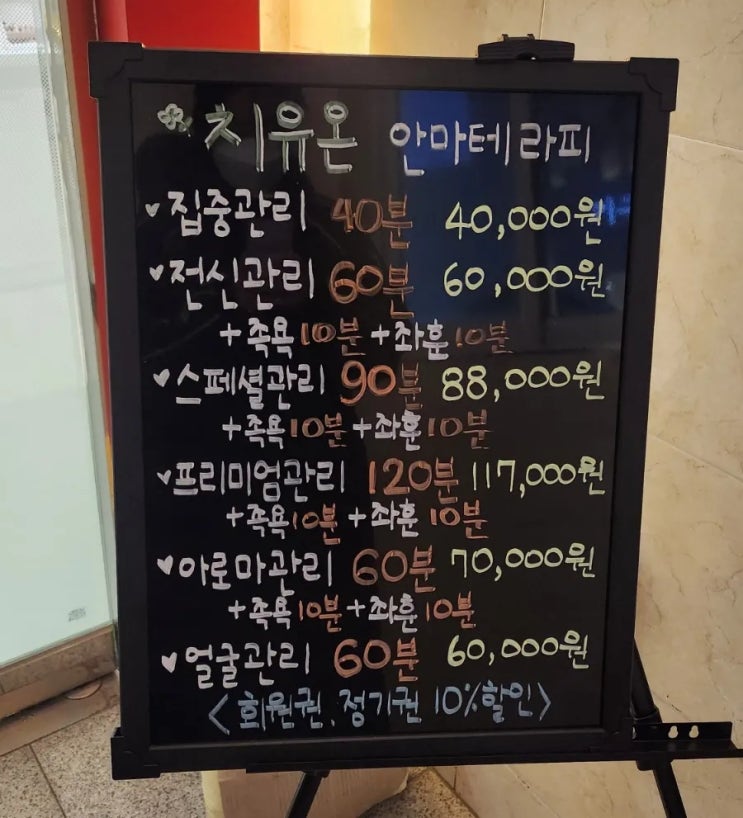 치유온 안마테라피
집중관리 40분 40,000원
전신관리 60분 60,000원
+족욕10분 +좌훈10분
스페셜관리 90분 88,000원
+족욕10분 +좌훈10분
프리미엄관리 120분 117,000원
+족욕10분 +좌훈10분
아로마관리 60분 70,000원
+족욕10분+좌훈10분
얼굴관리 60분 60,000원
<회원권.정기권 10%할인>